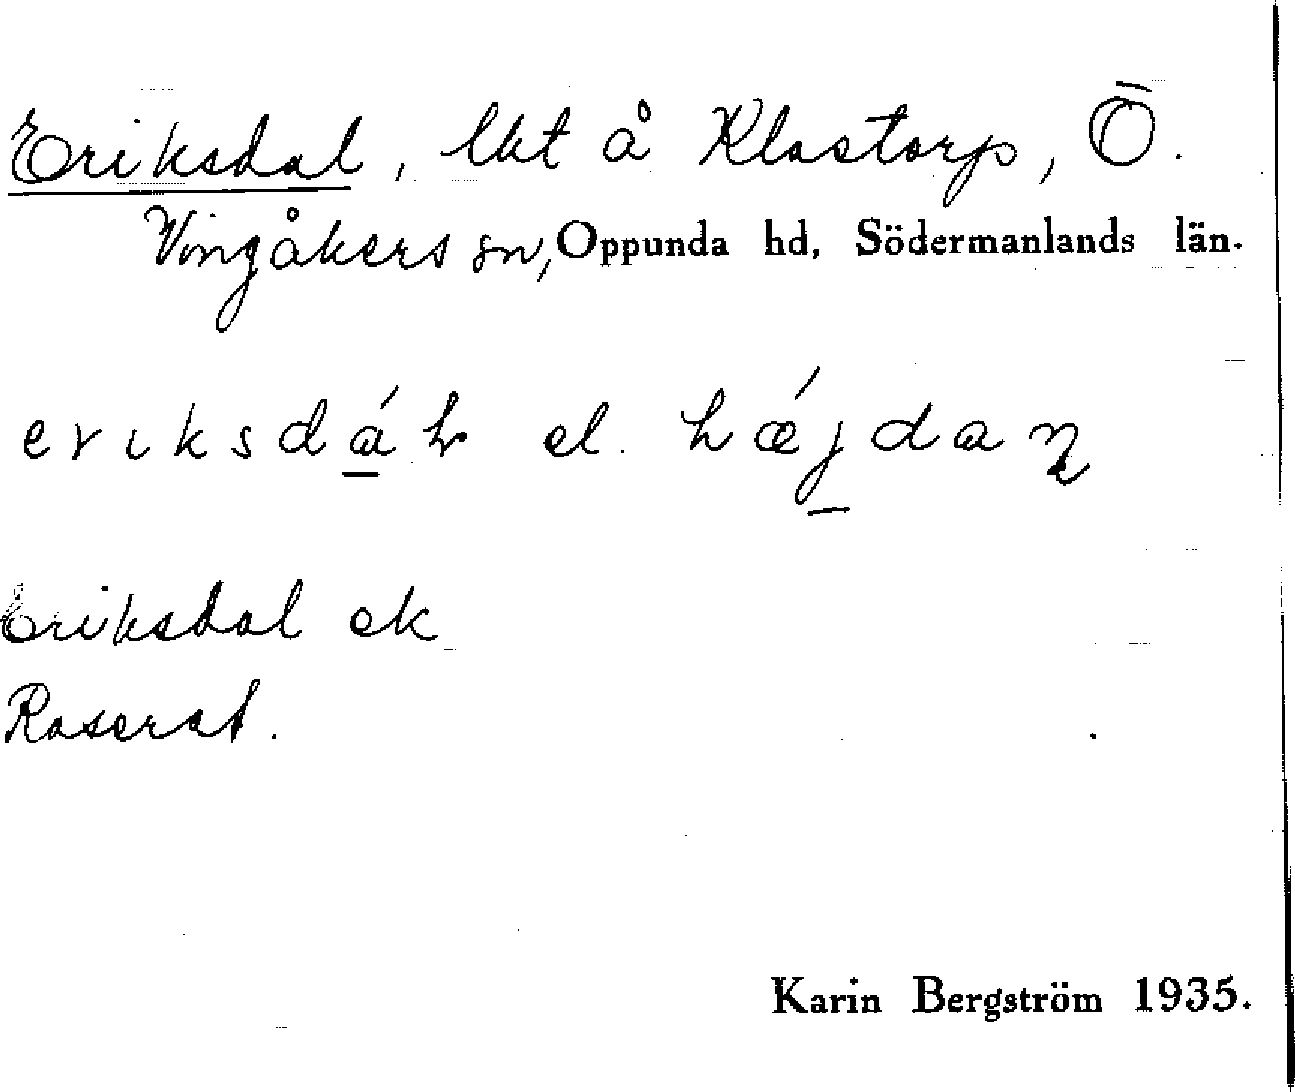 Eriksdal, lht å Klastorp, Ö.
Vingåkers sn, Oppunda hd, Södermanlands län.
eriksdáł el. hǽjdaɳ
Eriksdal ek
Raserat.
Karin Bergström 1935.